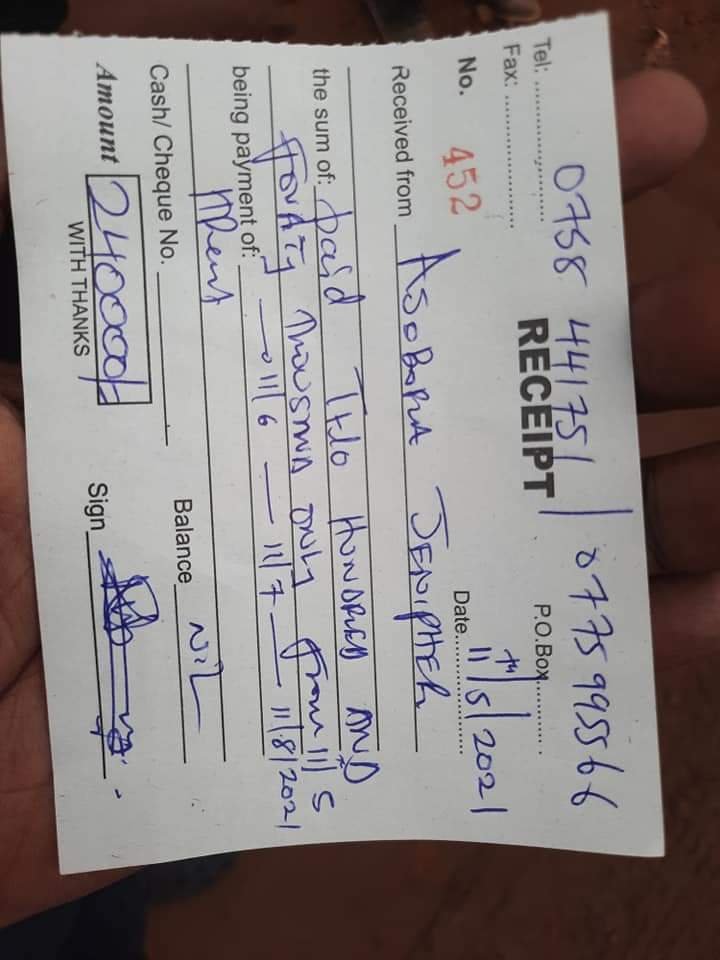 Tel: ............... 0758 441751 / 0775 995566
Fax: ............... RECEIPT P.O.Box...............
No. 452 Date 11th/5/2021
Received from ASOBORA JENIPHER
the sum of: paid TWO HUNDRED AND
FORATY THOUSAND ONLY From 11/5
being payment of: 11/6 — 11/7 — 11/8/2021
Rent
Cash/ Cheque No. Balance NIL
Amount 240000/= Sign
WITH THANKS